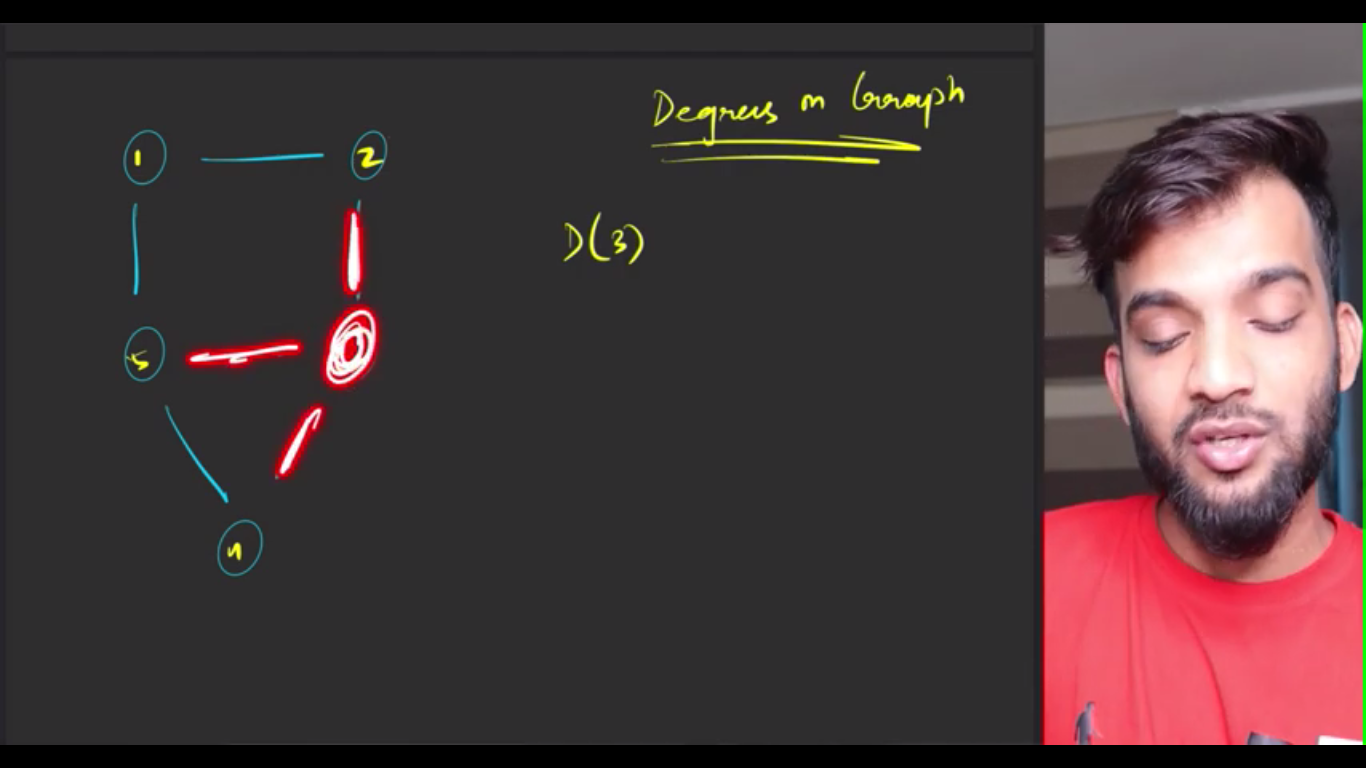 Degrees in Graph
1
2
D(3)
5
4